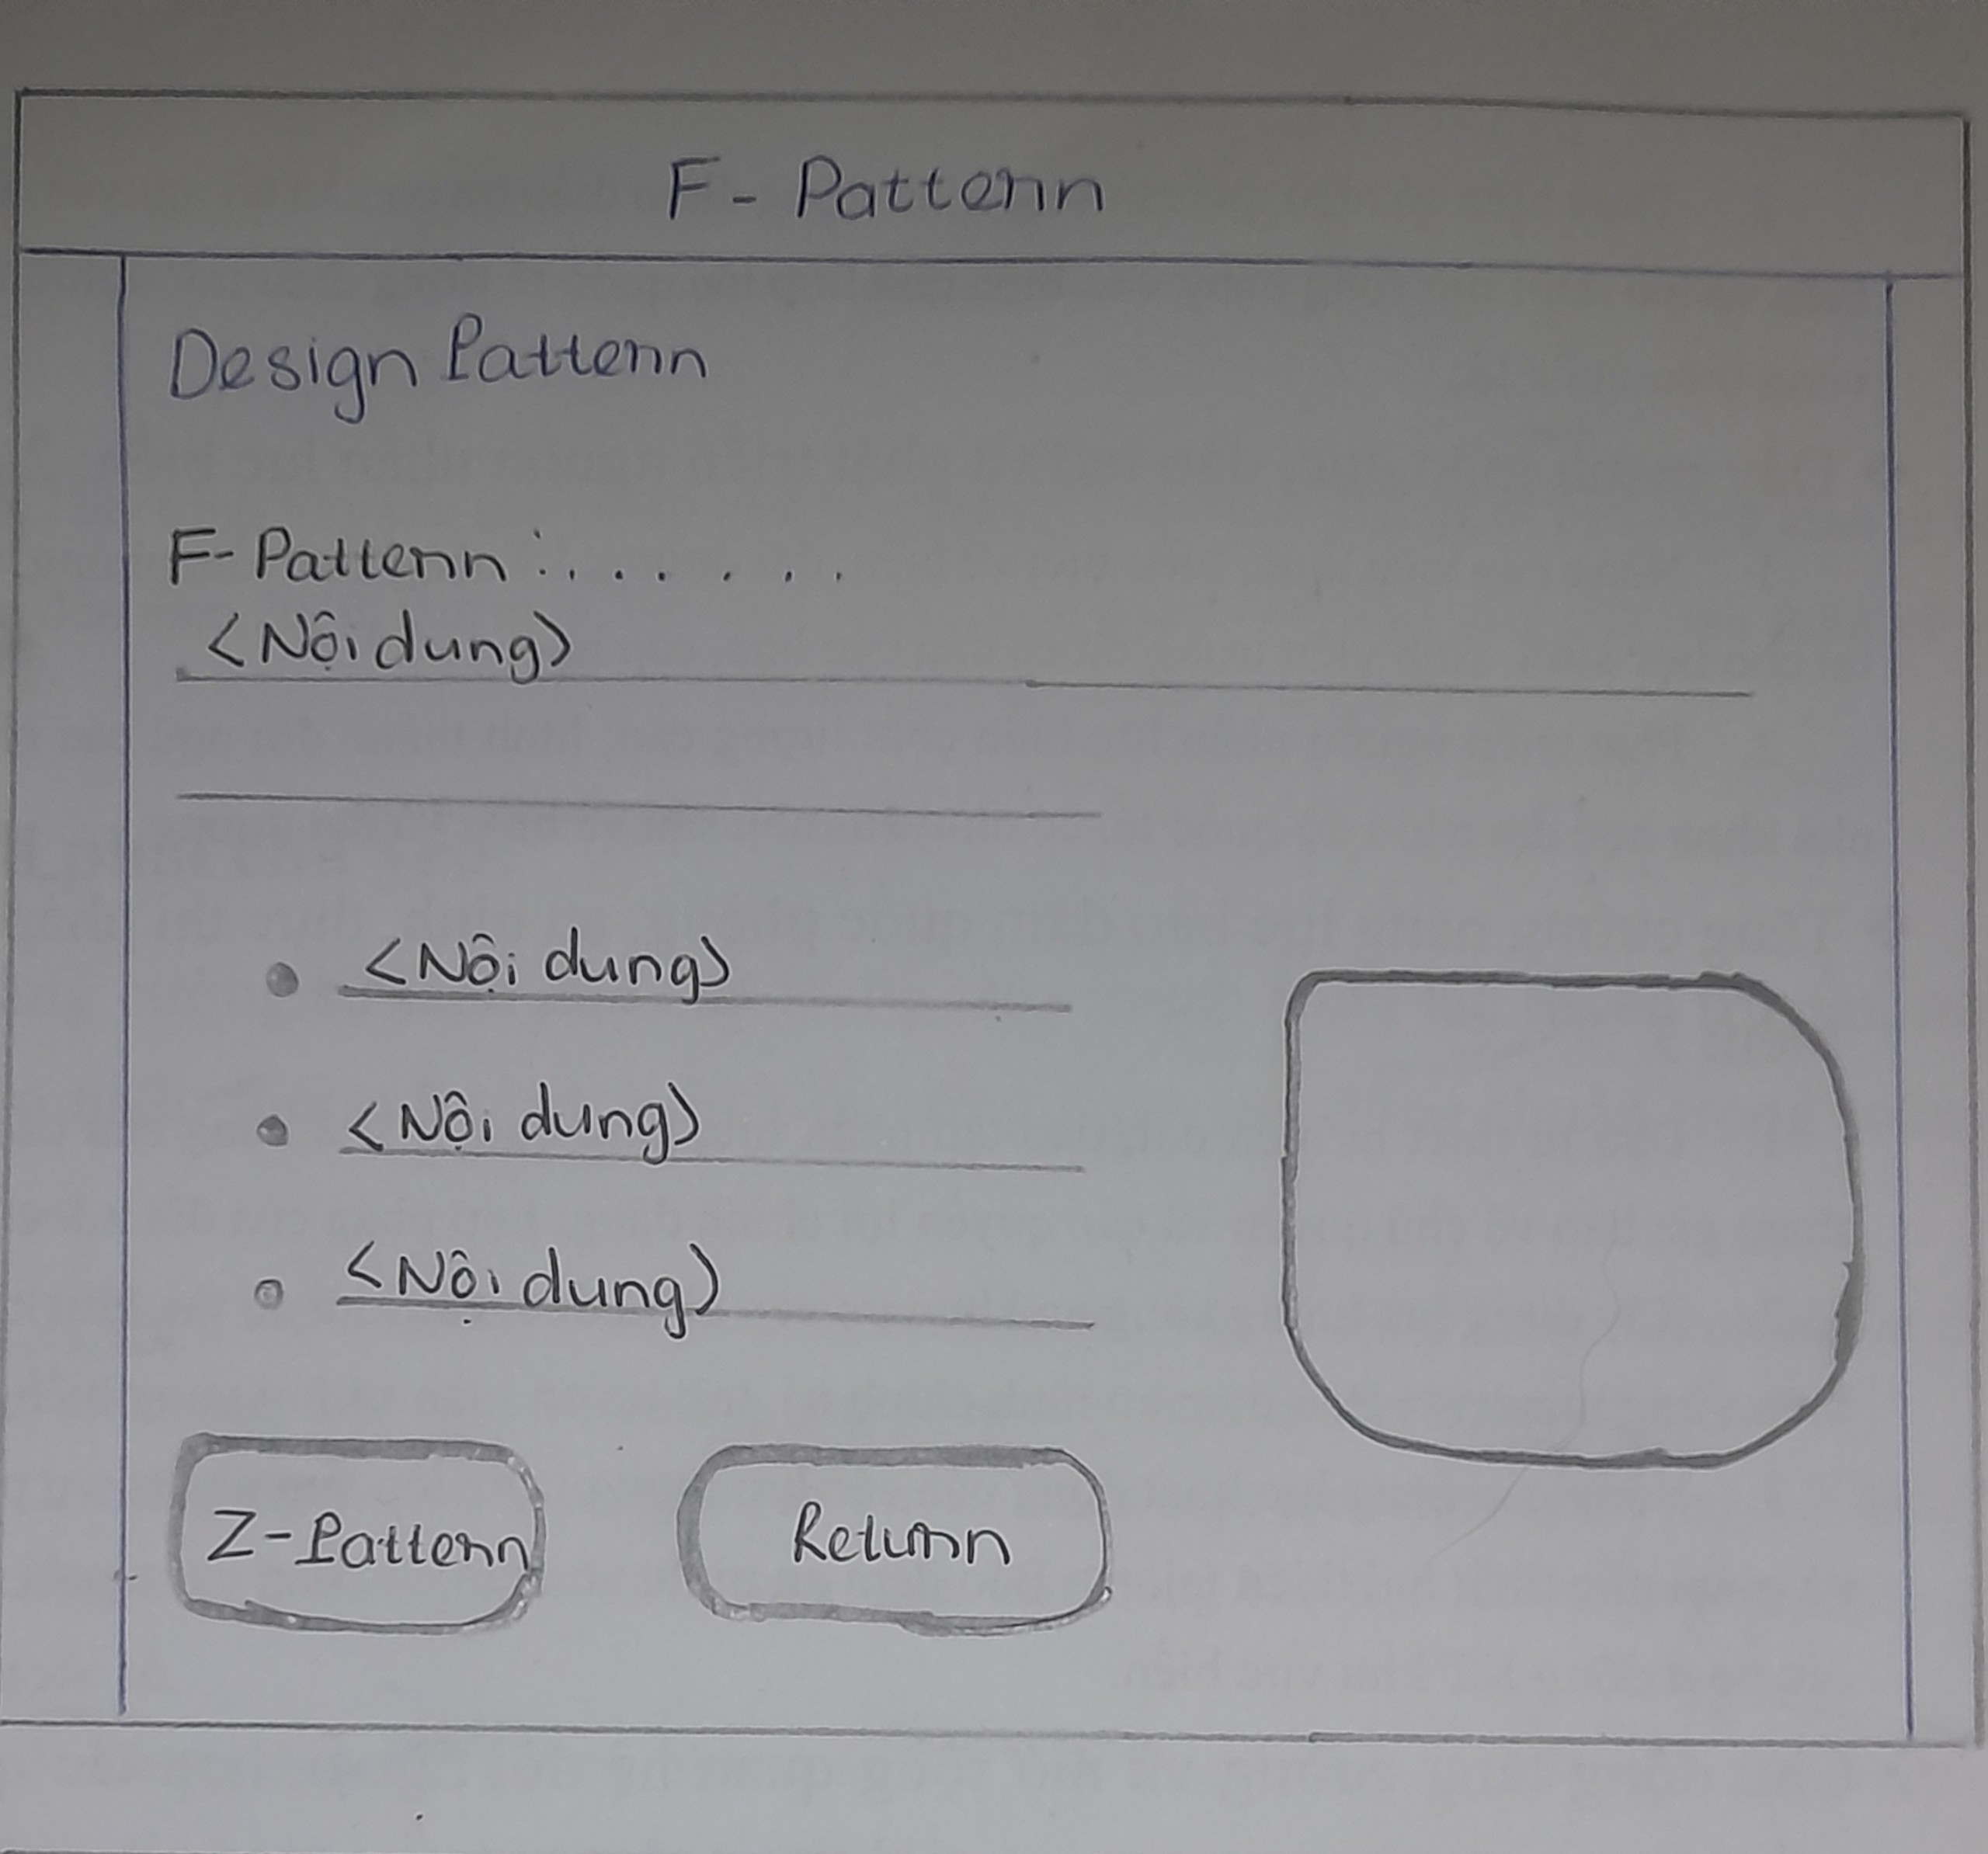 F- Pattern
Design Pattern
F- Pattern : . . . . . .
<Nội dung>
• <Nội dung>
• <Nội dung>
• <Nội dung>
Z-Pattern
Return